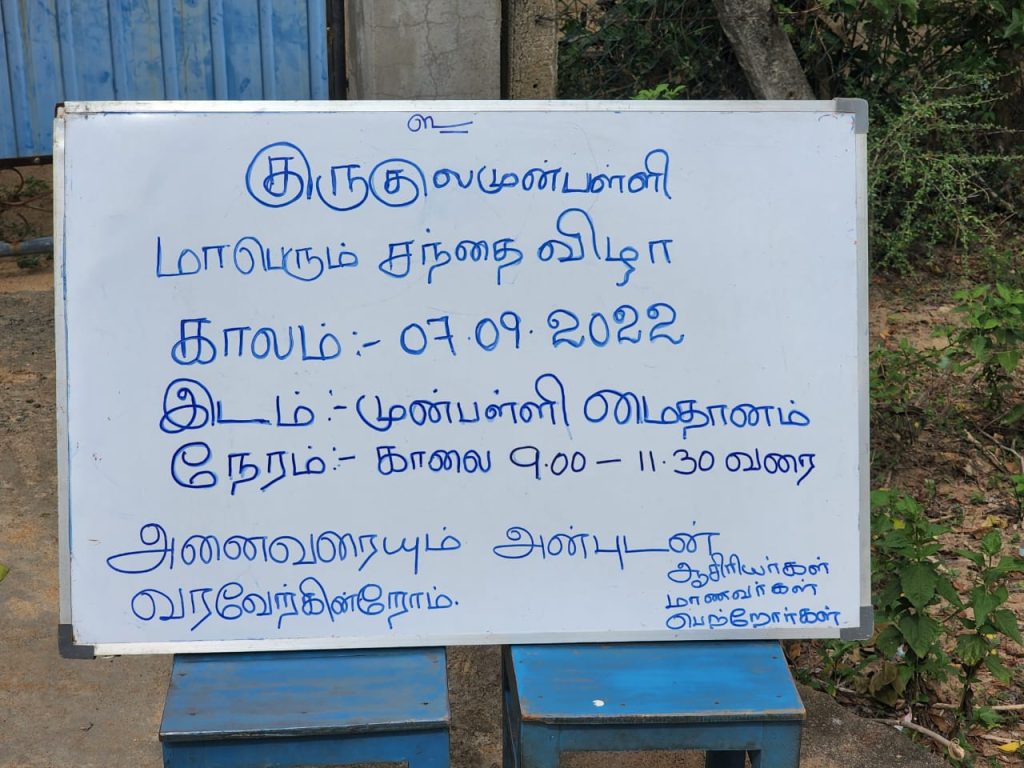 உ
குருகுலமுன்பள்ளி
மாபெரும் சந்தை விழா
காலம் :- 07.09.2022
இடம் :- முன்பள்ளி மைதானம்
நேரம் :- காலை 9.00 - 11.30 வரை
அனைவரையும் அன்புடன்
வரவேர்கின்றோம்.
ஆசிரியர்கள்
மாணவர்கள்
பெற்றோர்கள்